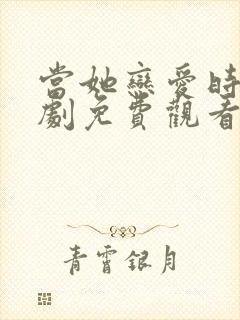 當她戀愛時
劇免費觀看
青霄銀月